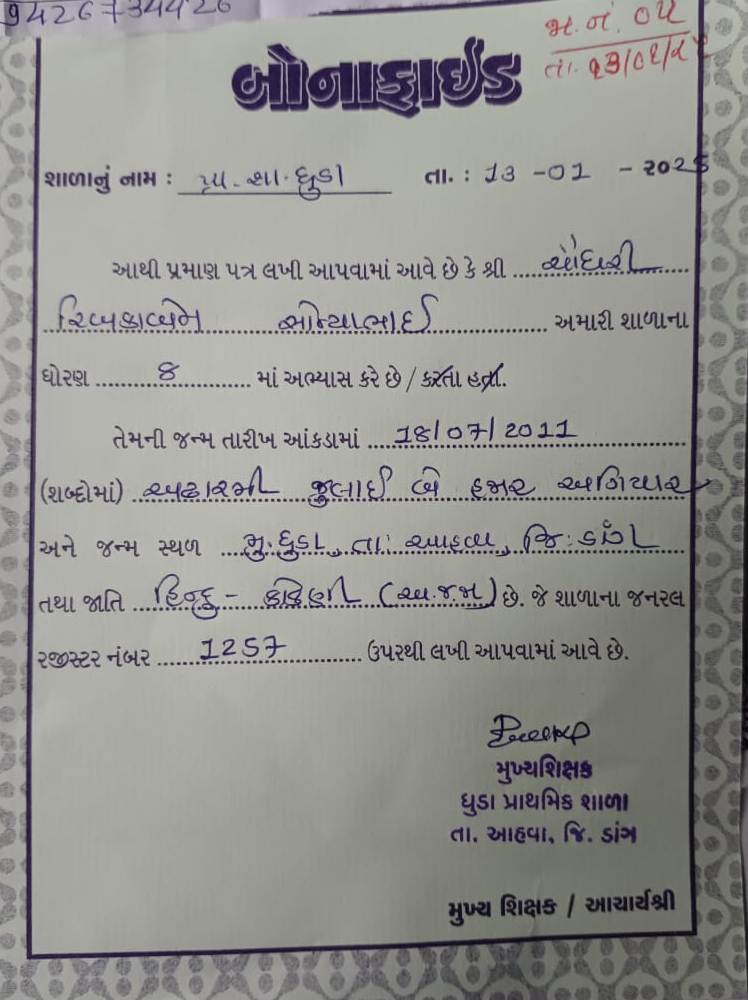 9426734426
જા.નં. ૦૫
તા. ૧૩/૦૧/૨૫
બોનાફાઈડ
શાળાનું નામ : પ્રા.શા.ધુડા તા. : 13 -01 - ૨૦૨5
આથી પ્રમાણ પત્ર લખી આપવામાં આવે છે કે શ્રી ચૌધરી
રિબકાબેન સોન્યાભાઈ અમારી શાળાના
ધોરણ 8 માં અભ્યાસ કરે છે / કરતા હતા.
તેમની જન્મ તારીખ આંકડામાં 18/07/2011
(શબ્દોમાં) અઢારમી જુલાઈ બે હજાર અગિયાર
અને જન્મ સ્થળ મુ:ધુડા, તા: આહવા, જિ:ડાંગ
તથા જાતિ હિન્દુ - કુકણા (અ.જ.જા) છે. જે શાળાના જનરલ
રજીસ્ટર નંબર 1257 ઉપરથી લખી આપવામાં આવે છે.
મુખ્યશિક્ષક
ધુડા પ્રાથમિક શાળા
તા. આહવા, જિ. ડાંગ
મુખ્ય શિક્ષક / આચાર્યશ્રી